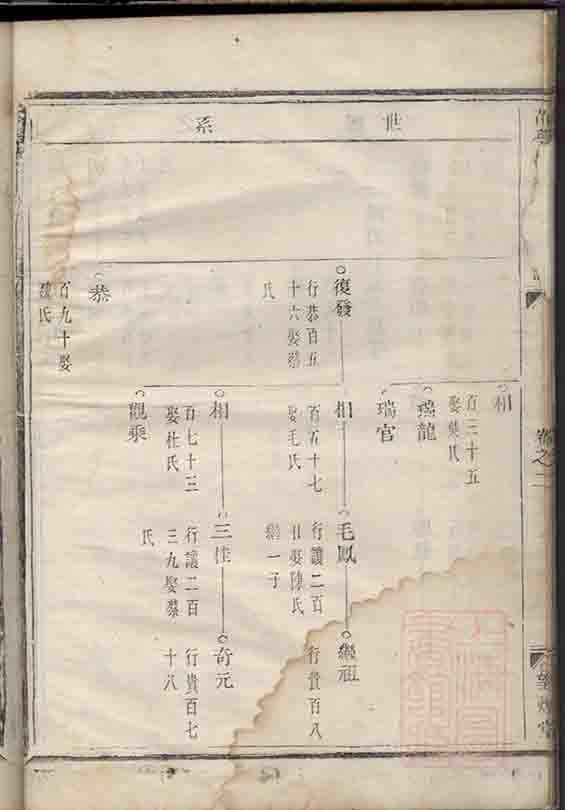 世系
相
百三十五
娶葉氏
瑞龍
瑞官
復發
行恭百五
十六娶蔡
氏
相
百五十七
娶毛氏
毛鳳
行讓二百
廿娶陳氏
繼一子
繼祖
行貴百八
相
百七十三
娶杜氏
三桂
行讓二百
三九娶蔡
氏
奇元
行貴百七
十八
觀乘
恭
百九十娶
氏
卷之二
堂